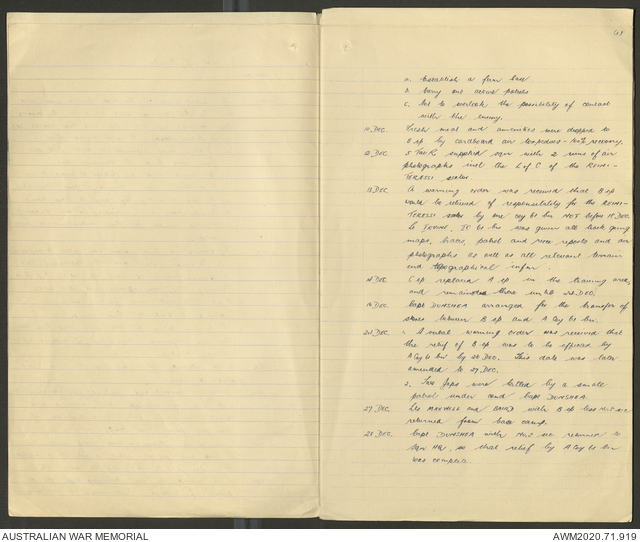 a. Establish a firm base
b. Carry out active patrols
c. Not to overlook the possibility of contact
with the enemy.
11 DEC. Fresh meat and amenities were dropped to
B sp by cardboard air torpedoes - 100% recovery.
12 DEC. 5 Tac R. supplied sqn with 2 runs of air
photographs incl the L of C of the
sector.
13 DEC. A warning order was received that B sp
would be relieved of responsibility for the
sector by one coy 61 bn NOT before 18 DEC.
Lt 61 bn was given all back going
maps, traces, patrol and recce reports and air
photographs as well as all relevant terrain
and topographical infm.
C sp replaced A sp in the training area,
and remained there until 28 DEC.
Capt DUNSHEA arranged for the transfer of
stores between B sp and A Coy 61 bn.
1. A verbal warning order was received that
the relief of B sp was to be effected by
A Coy 61 bn by 26 DEC. This date was later
amended to 27 DEC.
2. Two Japs were killed by a small
patrol under cond Capt DUNSHEA.
27 DEC. Lts MAXWELL and with B sp less
returned from base camp.
28 DEC. Capt DUNSHEA with sec returned to
Sqn HQ, so that relief by A Coy 61 bn
was complete.
AUSTRALIAN WAR MEMORIAL
AWM2020.71.919